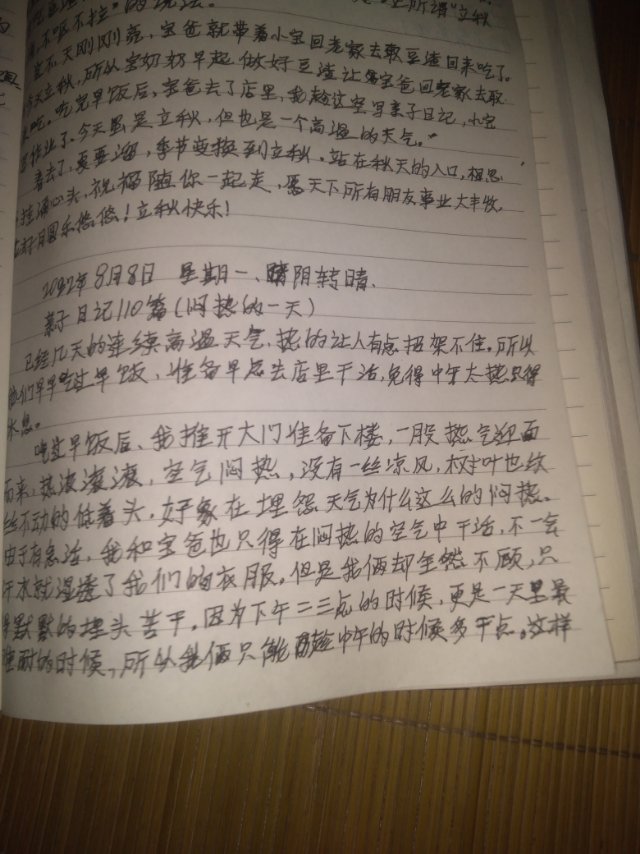 "立秋
不吃不拉"的说法。
不,天刚刚亮,宝爸就带着小宝回老家去取豆渣回来吃了。
天立秋,所以宝奶奶早起做好豆渣让宝爸回老家去取
吃。吃完早饭后,宝爸去了店里,我趁这空写亲子日记,小宝
作业了。今天虽是立秋,但也是一个高温的天气。
春去了,夏要溜,季节变换到立秋。站在秋天的入口,相思
挂满心头,祝福随你一起走,愿天下所有朋友事业大丰收
月圆乐悠悠!立秋快乐!
2022年8月8日 星期一、阴转晴、
亲子日记110篇(闷热的一天)
已经几天的连续高温天气,热的让人有点招架不住。所以
我们早早吃过早饭,准备早点去店里干活,免得中午太热只得
休息。
吃过早饭后、我推开大门准备下楼,一股热气迎面
而来,热浪滚滚,空气闷热,没有一丝凉风,树叶也纹
丝不动的低着头,好象在埋怨天气为什么这么的闷热。
由于有急活,我和宝爸也只得在闷热的空气中干活,不一会
汗水就湿透了我们的衣服。但是我俩却全然不顾,只
是默默的埋头苦干。因为下午二三点的时候,更是一天里最
难耐的时候,所以我俩只能趁中午的时候多干点。这样